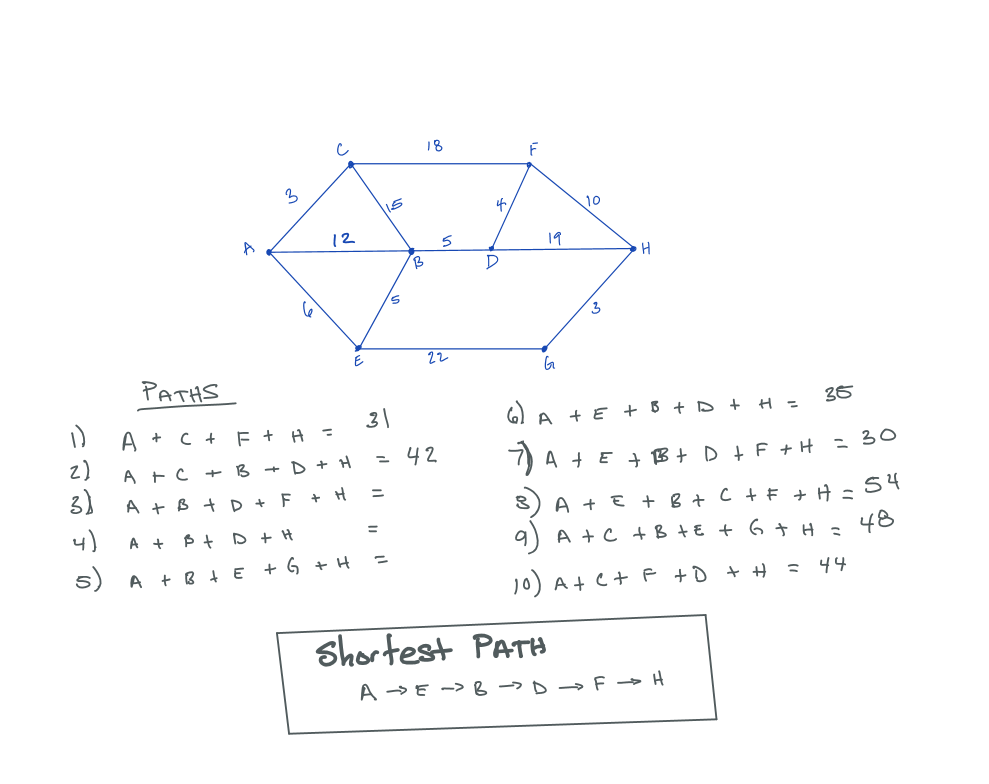 C 18 F
3 15 4 10
A 12 B 5 D 19 H
6 5 3
E 22 G
PATHS
1) A + C + F + H = 31
2) A + C + B + D + H = 42
3) A + B + D + F + H =
4) A + B + D + H =
5) A + B + E + G + H =
6) A + E + B + D + H = 35
7) A + E + B + D + F + H = 30
8) A + E + B + C + F + H = 54
9) A + C + B + E + G + H = 48
10) A + C + F + D + H = 44
Shortest PATH
A → E → B → D → F → H